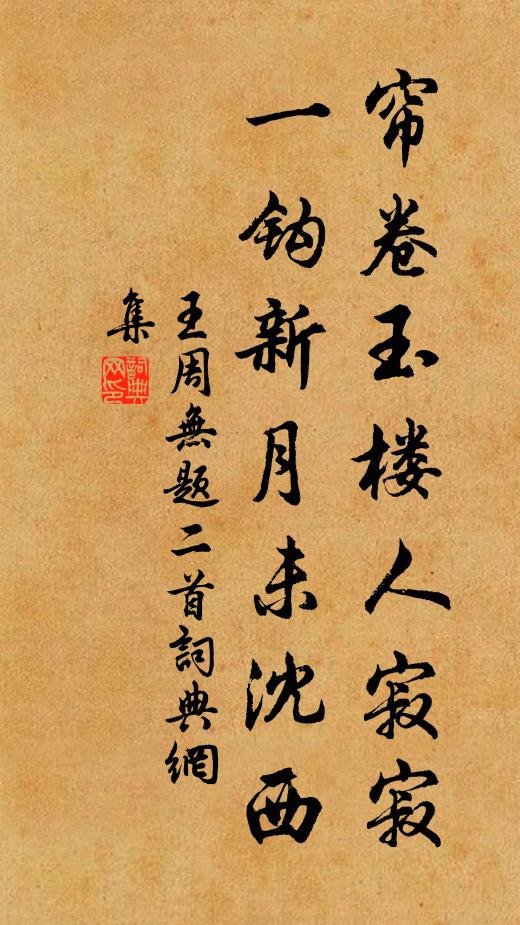 帘卷玉楼人寂寂
一钩新月未沈西
王周無题二首詞典網
集
詞典網印